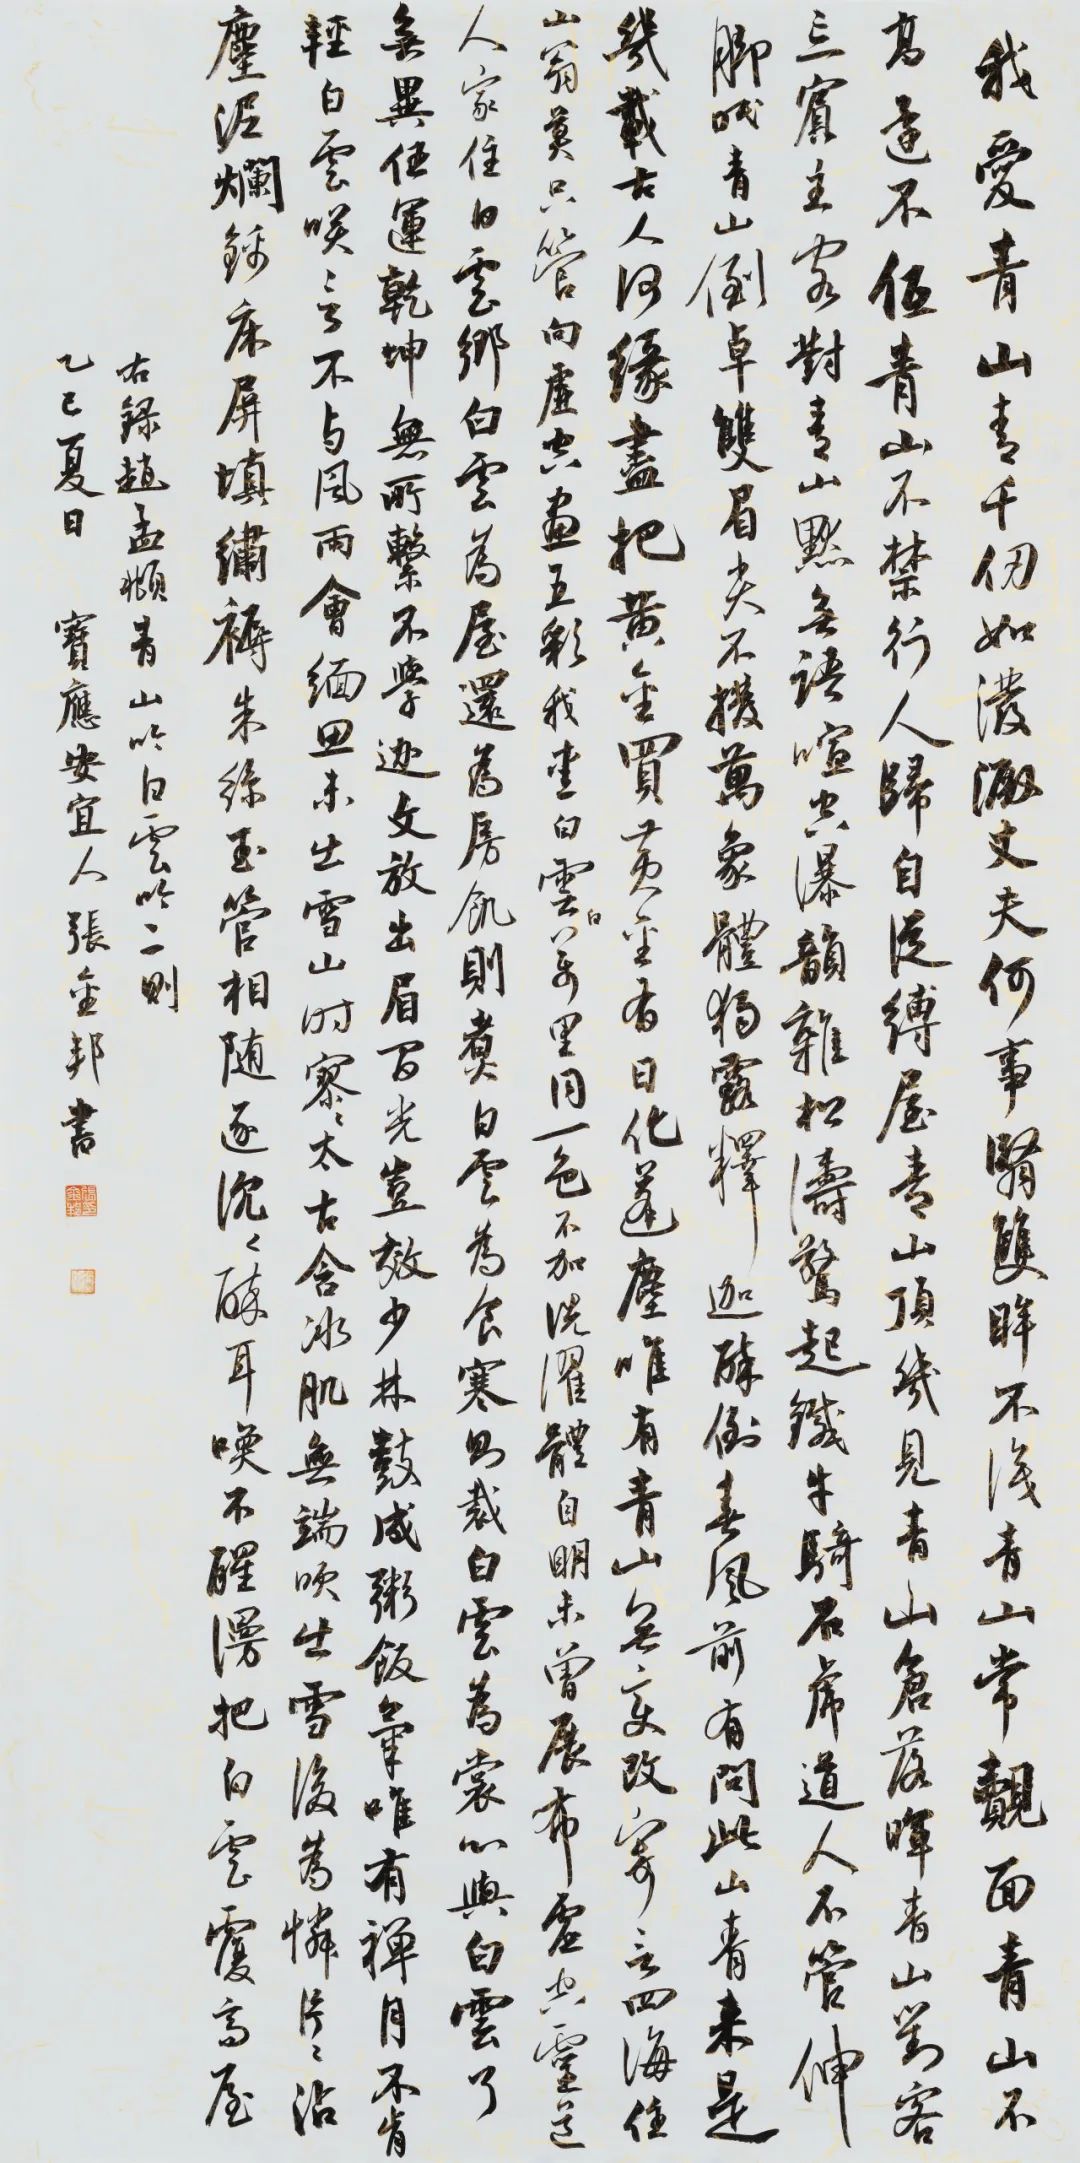 我愛青山青千仞如潑澱丈夫何事瞖雙眸不識青山常覿面青山不
高還不低青山不禁行人歸自從縛屋青山頂幾見青山含落暉青山對客
忘賓主客對青山默無語喧空瀑韻雜松濤驚起鐵牛騎石虎道人不管伸
脚眠青山倒卓雙眉尖不撥萬象體獨露釋迦醉倒春風前有問此山青來是
幾載古人何緣盡把黃金買黃金有日化蓬塵唯有青山無變改寄言四海住
山翁莫只管向虛空畫五彩我愛白雲白萬里同一色不加洗濯體自明未曾展布虛空道
人家住白雲鄉白雲為屋還為房飢則煮白雲為食寒則裁白雲為裳心與白雲了
無異任運乾坤無所繫不學迦文放出眉間光豈效少林鼓成粥飯氣唯有禪月不肯
輕白雲咲言不与風雨會緬思未出雪山时寥寥太古含冰肌無端吹出雪後為憐片片沾
塵泥爛錦床屏填繡褥朱絲玉管相随逐沉沉醉耳喚不醒漫把白雲覆高屋
右録趙孟頫青山吟白雲吟二則
乙巳夏日 寶應安宜人張金邦書